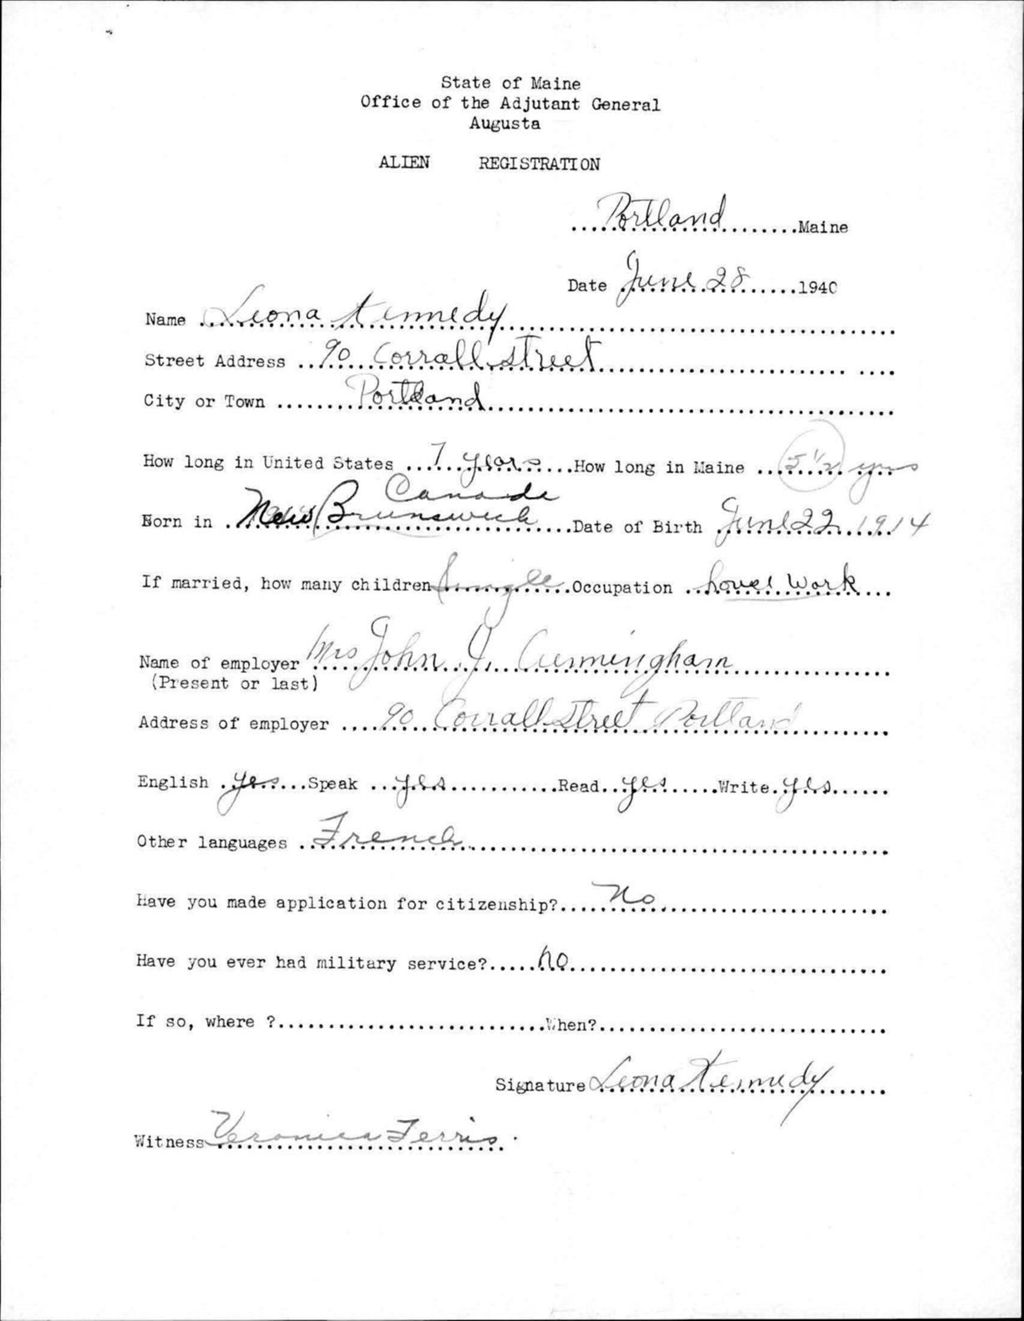 State of Maine
Office of the Adjutant General
Augusta
ALIEN REGISTRATION
Portland Maine
Date June 28 1940
Name Leona Kennedy
Street Address 90 Corrall Street
City or Town Portland
How long in United States 7 years How long in Maine 5 1/2 yrs
Canada
Born in New Brunswick Date of Birth June 22, 1914
If married, how many children single Occupation house work
Name of employer Mrs John J. Cunningham
(Present or last)
Address of employer 90 Corrall Street Portland
English yes Speak yes Read yes Write yes
Other languages French
Have you made application for citizenship? No
Have you ever had military service? no
If so, where ? When?
Signature Leona Kennedy
Witness Veronica Ferris